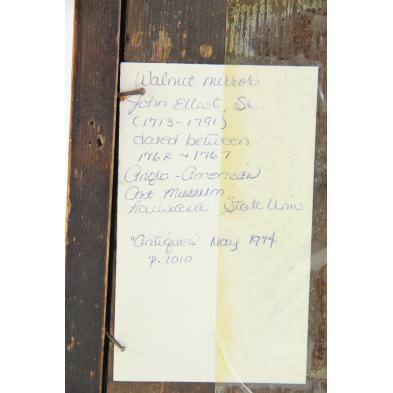 Walnut mirror
John Elliot, Sr.
(1713-1791)
dated between
1762 + 1767
Anglo-American
Art Museum
Louisiana State Univ
"Antiques" May 1974
p. 1010